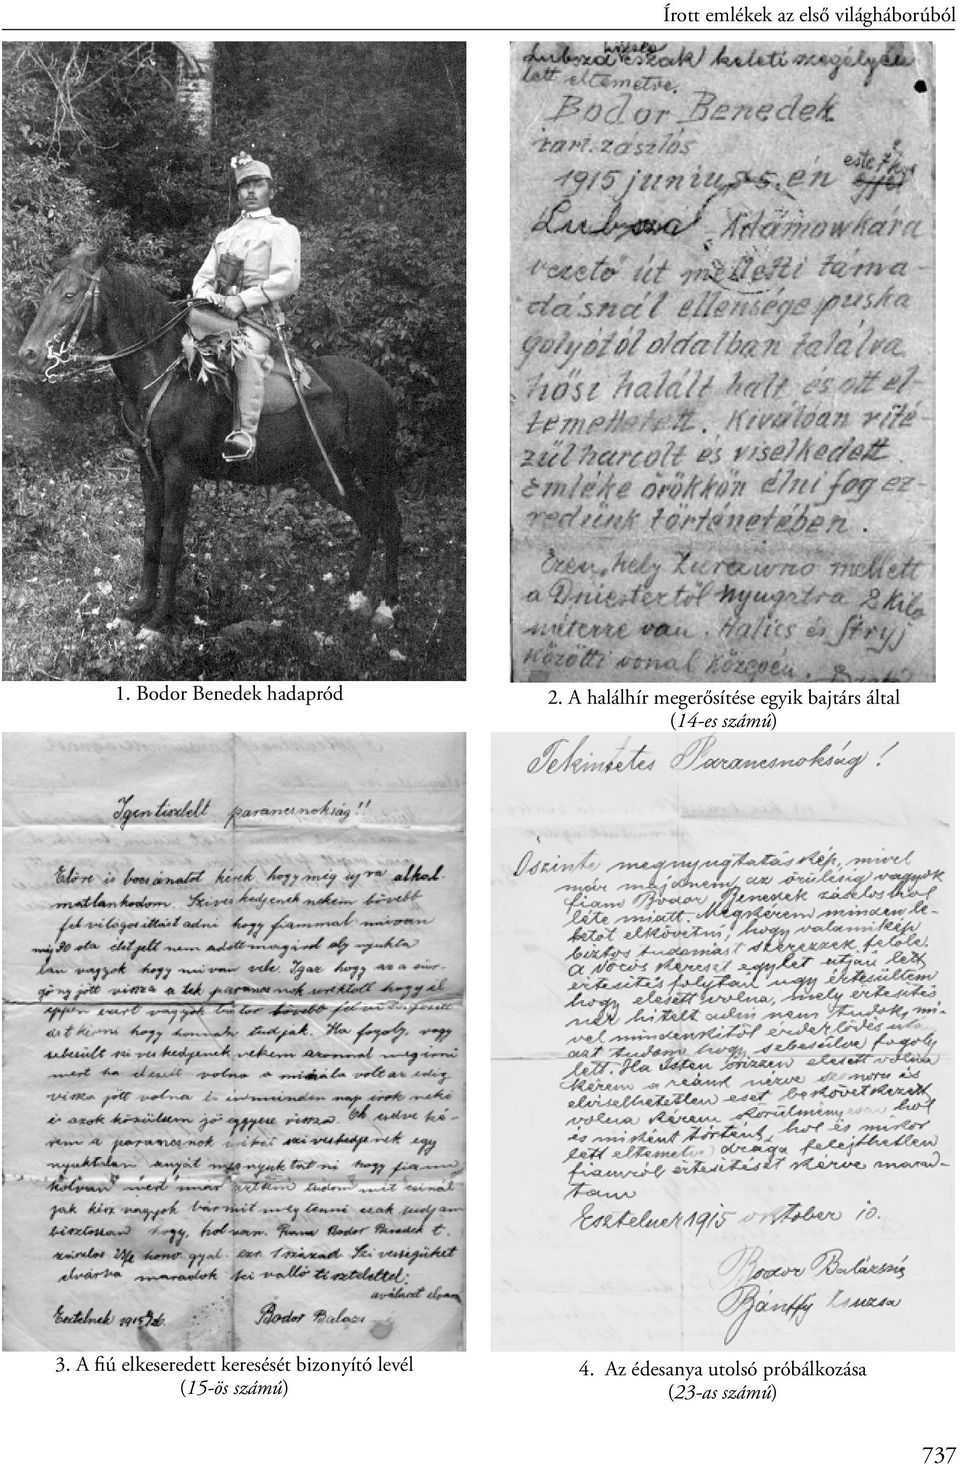 Írott emlékek az első világháborúból
Lubsza község észak keleti szegélyén
lett eltemetve.
Bodor Benedek
tart. zászlós
1915 junius 5.én este 7
Lubsza Adamowkára
vezető út melletti táma-
dásnál ellenséges puska
golyótól oldalban találva
hősi halált halt és ott el-
temettetett. Kiválóan vité-
zül harcolt és viselkedett.
Emléke örökkön élni fog ez-
redünk történetében.
Ezen hely Zurawno mellett
a Dniestertől nyugatra 2 kilo
méterre van. Halics és Stryj
közötti vonal közepén.
1. Bodor Benedek hadapród
2. A halálhír megerősítése egyik bajtárs által
(14-es számú)
Igen tisztelt parancsnokság!!
Előre is bocsánatot kérek hogy még ujra alkal
matlankodom. Szíveskedjenek nekem bővebb
felvilágosittást adni hogy fiammal mi van
még 30 ota életjelt nem adott magáról oly nyukta
lan vagyok hogy mi van vele. Igaz hogy az a sür-
göny jött vissza a tek parancsnok uraktoll hogy él
éppen ezért vagyok bátor bővebb
kérni hogy honnan tudják. Ha fogoly, vagy
sebesült sziveskedjenek nekem azonnal megirni
mert ha elesett volna a volt ar edig
vissza jött volna és inminden nap irok neki
és azok közüllem jö eggyese vissza. Oh esdve ké-
rem a parancsnok szíveskedjenek egy
nyuktalan anyát megnyuktatni hogy fiam
holvan mert már tudom mit csinál
jak kész vagyok bármit meg tenni csak tudjam
bisztossan hogy, hol van. Fiam Bodor Benedek t.
zászlos honv. gyal. ezr. 1 század Szívességüket
elvárva maradok kivalló tisztelettel:
Esztelnek 1915 Bodor Balazs
Tekintetes Parancsnokság!
Öszinte megnyugtatáskép, mivel
már majdnem az örülésig vagyok
fiam Bodor Benedek zászlos hol
léte miatt. Megkérem minden le-
hetőt elkövetni, hogy valamikép
biztos tudomást szerezzek felőle.
A Vörös kereszt egylet utján lett
értesités folytán ugy értesültem
hogy elesett volna, mely értesités
nek hitelt adni nem tudok, mi-
vel mindenkitől érdeklődés után
azt tudom hogy sebesülve fogoly
lett. Ha Isten őrizzen elesett volna
kérem a reánk nézve szomoru és
elviselhetetlen eset bekövetkezett
volna kérem körülményesen hol
és miként történt, hol és mikor
lett eltemetve drága felejthetlen
fiamról értesitését kérve marad-
tam
Esztelnek 1915 oktober 10.
Bodor Balázsné
Bánffy Zsuzsa
3. A fiú elkeseredett keresését bizonyító levél
(15-ös számú)
4. Az édesanya utolsó próbálkozása
(23-as számú)
737